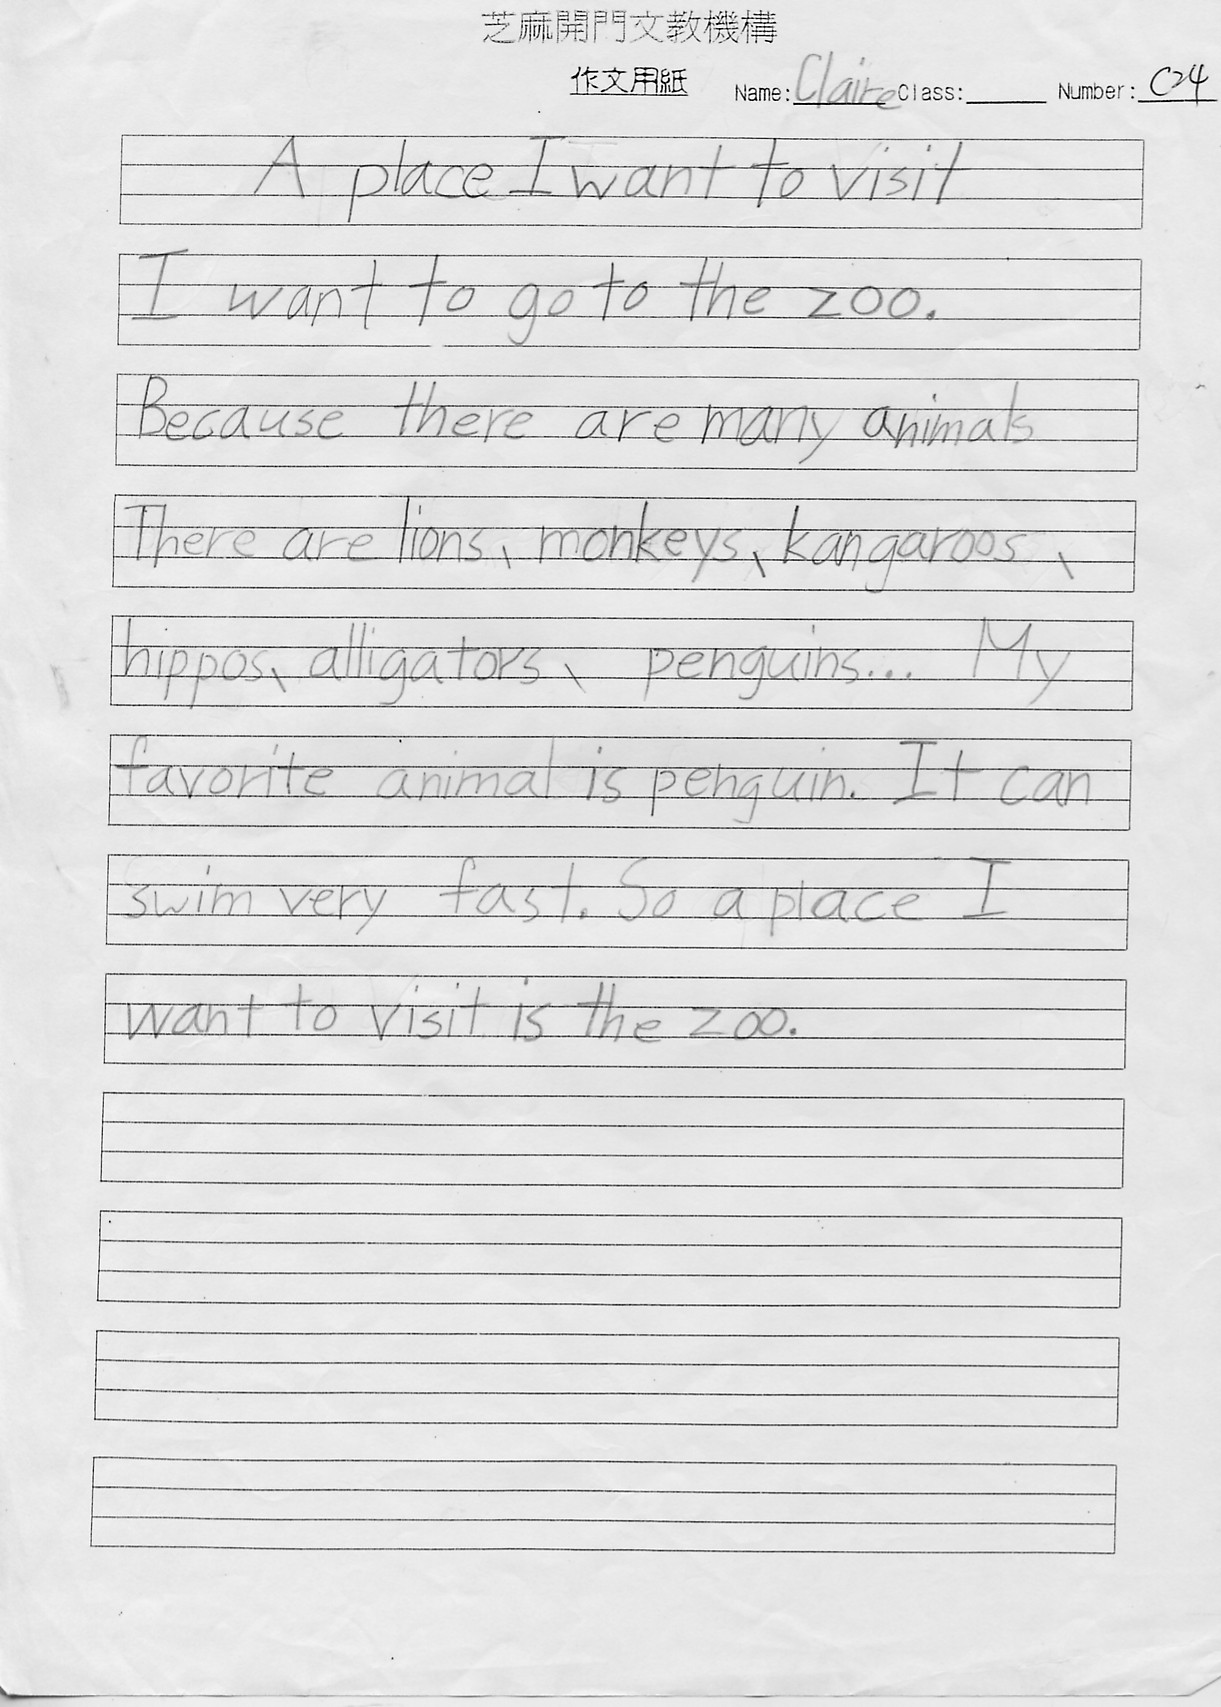 芝麻開門文教機構
作文用紙 Name: Claire Class: Number: C24
A place I want to visit
I want to go to the zoo.
Because there are many animals
There are lions、monkeys、kangaroos、
hippos、alligators、 penguins... My
favorite animal is penguin. It can
swim very fast. So a place I
want to visit is the zoo.